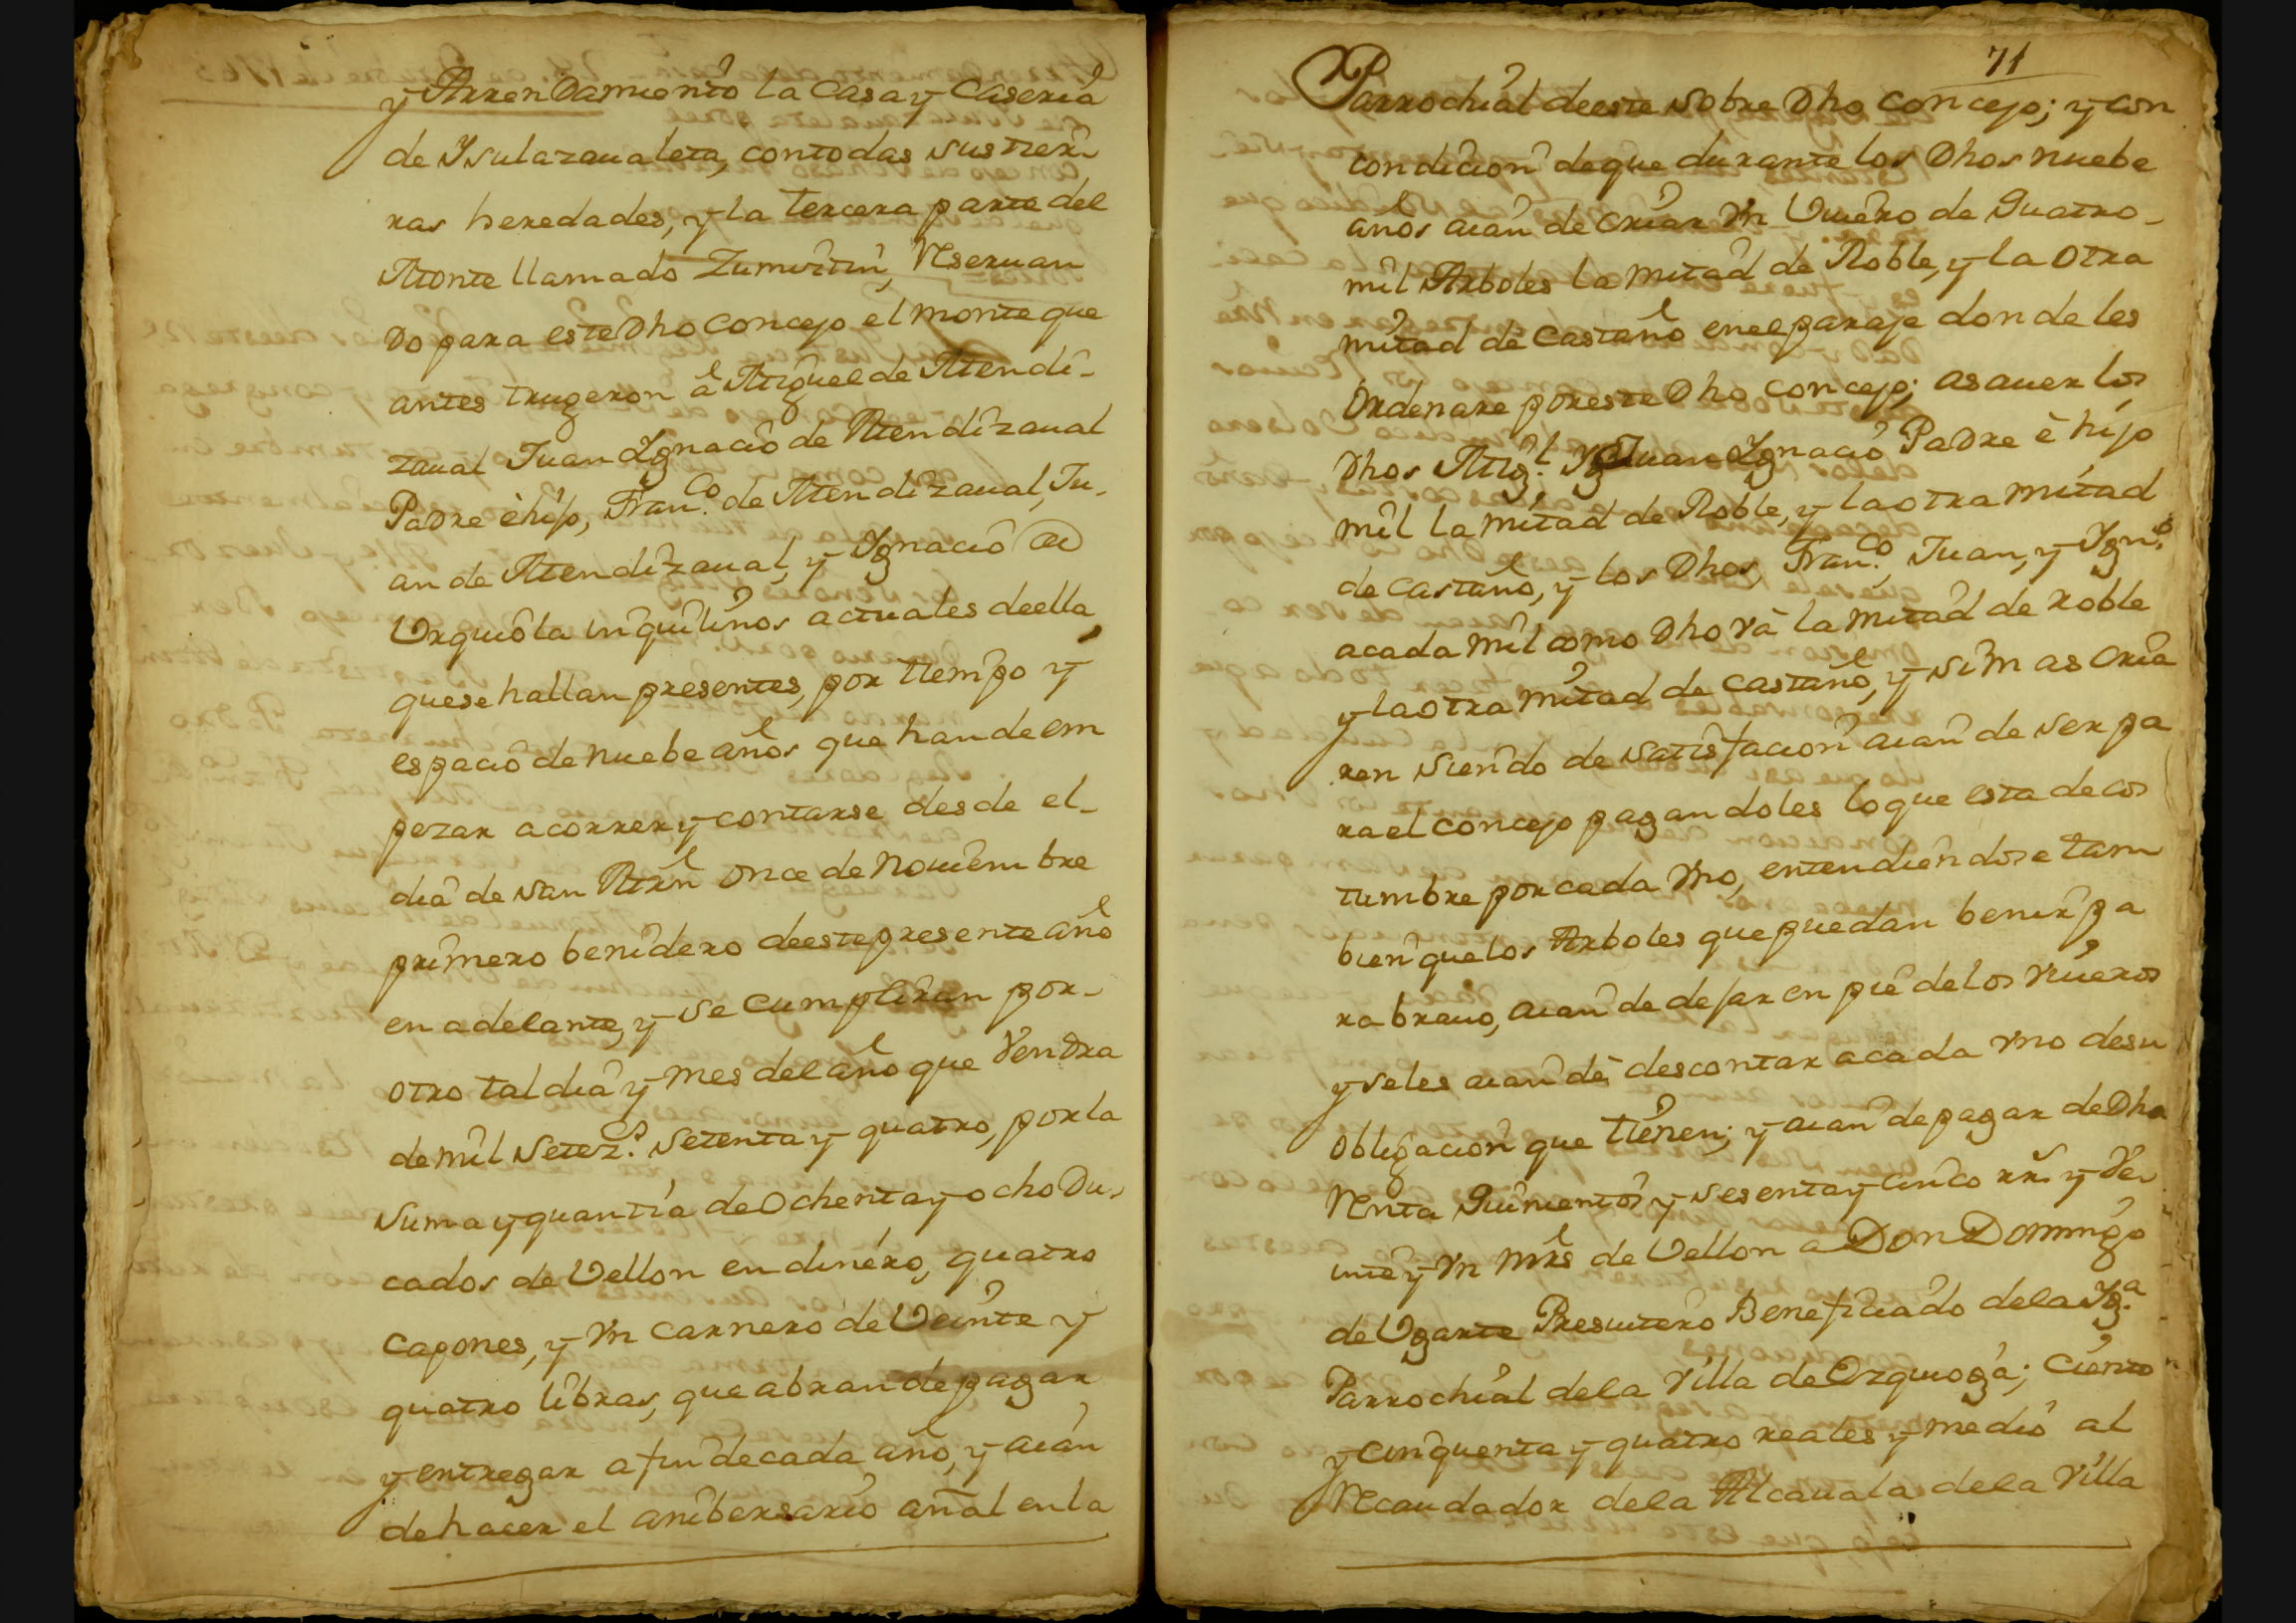 y Arrendamiento la Casa y Caseria
de Ysulazaualeta, con todas sus tier-
ras heredades, y la tercera parte del
Monte llamado Zumiztin, Reseruan
do para este Dho Concejo el monte que
antes trugeron â Miguel de Mendi-
zaual Juan Ygnacio de Mendizaual
Padre è hijo, Fran.co de Mendizaual, Ju-
an de Mendizaual, y Ygnacio de
Urquiola inquilinos actuales de ella
que se hallan presentes, por tiempo y
espacio de nuebe años que han de em
pezar a correr y contarse desde el-
dia de san Mrñ once de Nouiembre
primero benidero de este presente año
en adelante, y se cumpliran por-
otro tal dia y mes del año que Vendra
de mil Setez.s Setenta y quatro, por la
suma y quantia de Ochenta y ocho Du-
cados de Vellon en dinero, quatro
Capones, y Vn Carnero de Veinte y
quatro libras, que abran de pagar
y entregar a fin de cada año, y aian
de hacer el anibersario añal en la
71
Parrochial de este sobre Dho Concejo; y con
condicion de que durante los Dhos nuebe
años aian de criar Vn Viuero de Quatro-
mil Arboles la mitad de Roble, y la otra
mitad de Castaño en el paraje donde les
Ordenare por este Dho Concejo; a sauer los
Dhos Mig.l y Juan Ygnacio Padre è hijo
mil la mitad de Roble, y la otra mitad
de Castaño, y los Dhos, Fran.co Juan, y Ygn.o
a cada mil como Dho Và la mitad de roble
y la otra mitad de castaño, y si mas cria
ren siendo de satisfacion aian de ser pa
ra el concejo pagandoles lo que esta de cos
tumbre por cada Vno, entendiendose tam
bien que los Arboles que puedan benir pa
ra brauo, aian de dejar en pie de los Viueros
y se les aian de descontar a cada Vno de su
obligacion que tienen; y aian de pagar de Dha
Renta Quinientos y sesenta y cinco rrs y Ve-
inte y Vn mrs de Vellon a Don Domingo
de Ugarte Presuitero Beneficiado de la Yg.a
Parrochial de la Villa de Ezquioga; Ciento
y cinquenta y quatro reales y medio al
Recaudador de la Alcauala de la Villa